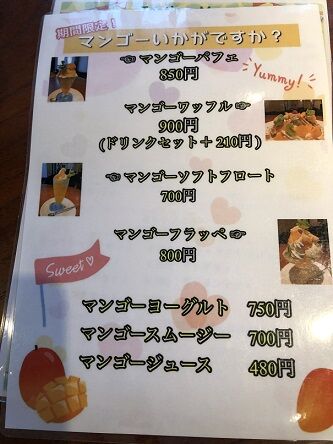 期間限定！
マンゴーいかがですか？
☜ マンゴーパフェ
850円
Yummy!
マンゴーワッフル ☞
900円
(ドリンクセット＋210円)
☜ マンゴーソフトフロート
700円
マンゴーフラッペ ☞
800円
Sweet♡
マンゴーヨーグルト 750円
マンゴースムージー 700円
マンゴージュース 480円